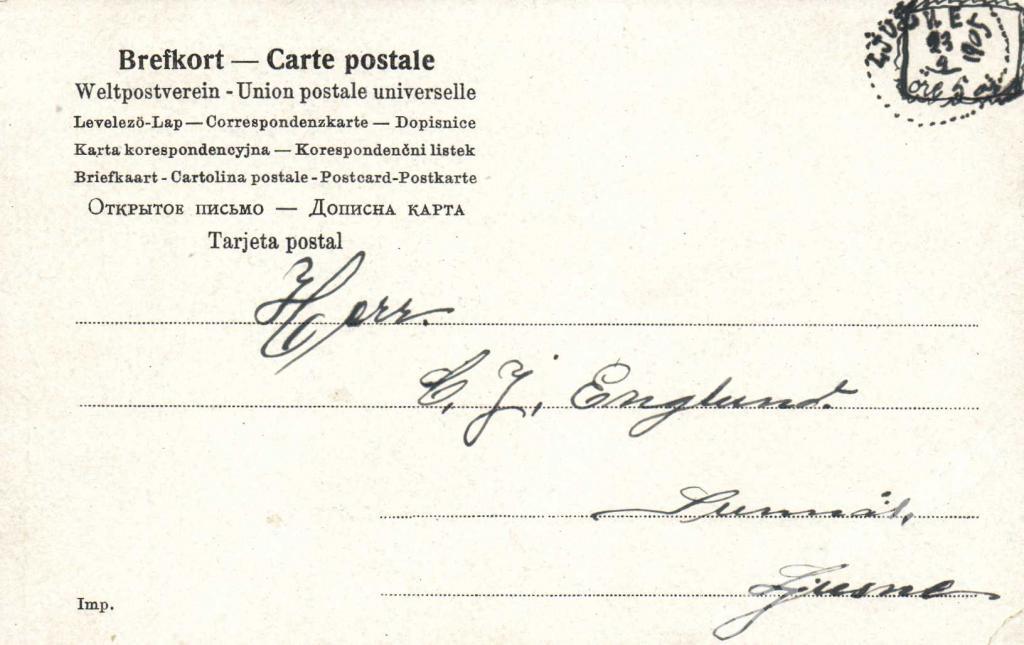 Brefkort — Carte postale
Weltpostverein - Union postale universelle
Levelező-Lap — Correspondenzkarte — Dopisnice
Karta korespondencyjna — Korespondenčni listek
Briefkaart - Cartolina postale - Postcard-Postkarte
Открытое письмо — Дописна карта
Tarjeta postal
23
2
1905
öre 5
Herr.
C. J. Englund.
Ljusne
Imp.